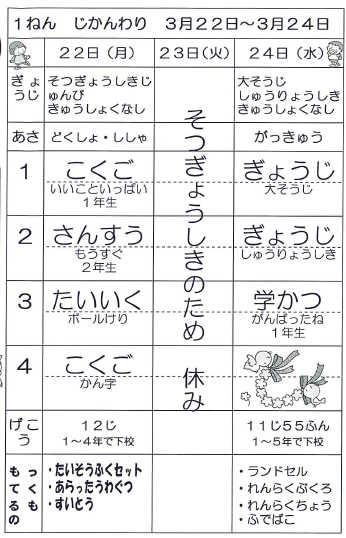 １ねん　じかんわり　３月２２日〜３月２４日
２２日（月）
２３日（火）
２４日（水）
ぎょうじ
そつぎょうしきじ
ゅんび
きゅうしょくなし
大そうじ
しゅうりょうしき
きゅうしょくなし
あさ
どくしょ・ししゃ
がっきゅう
そつぎょうしきのため　休み
1
こくご
いいこといっぱい
１年生
ぎょうじ
大そうじ
2
さんすう
もうすぐ
２年生
ぎょうじ
しゅうりょうしき
3
たいいく
ボールけり
学かつ
がんばったね
１年生
4
こくご
かん字
げこう
１２じ
１〜４年で下校
１１じ５５ふん
１〜５年で下校
もってくるもの
・たいそうふくセット
・あらったうわぐつ
・すいとう
・ランドセル
・れんらくぶくろ
・れんらくちょう
・ふでばこ